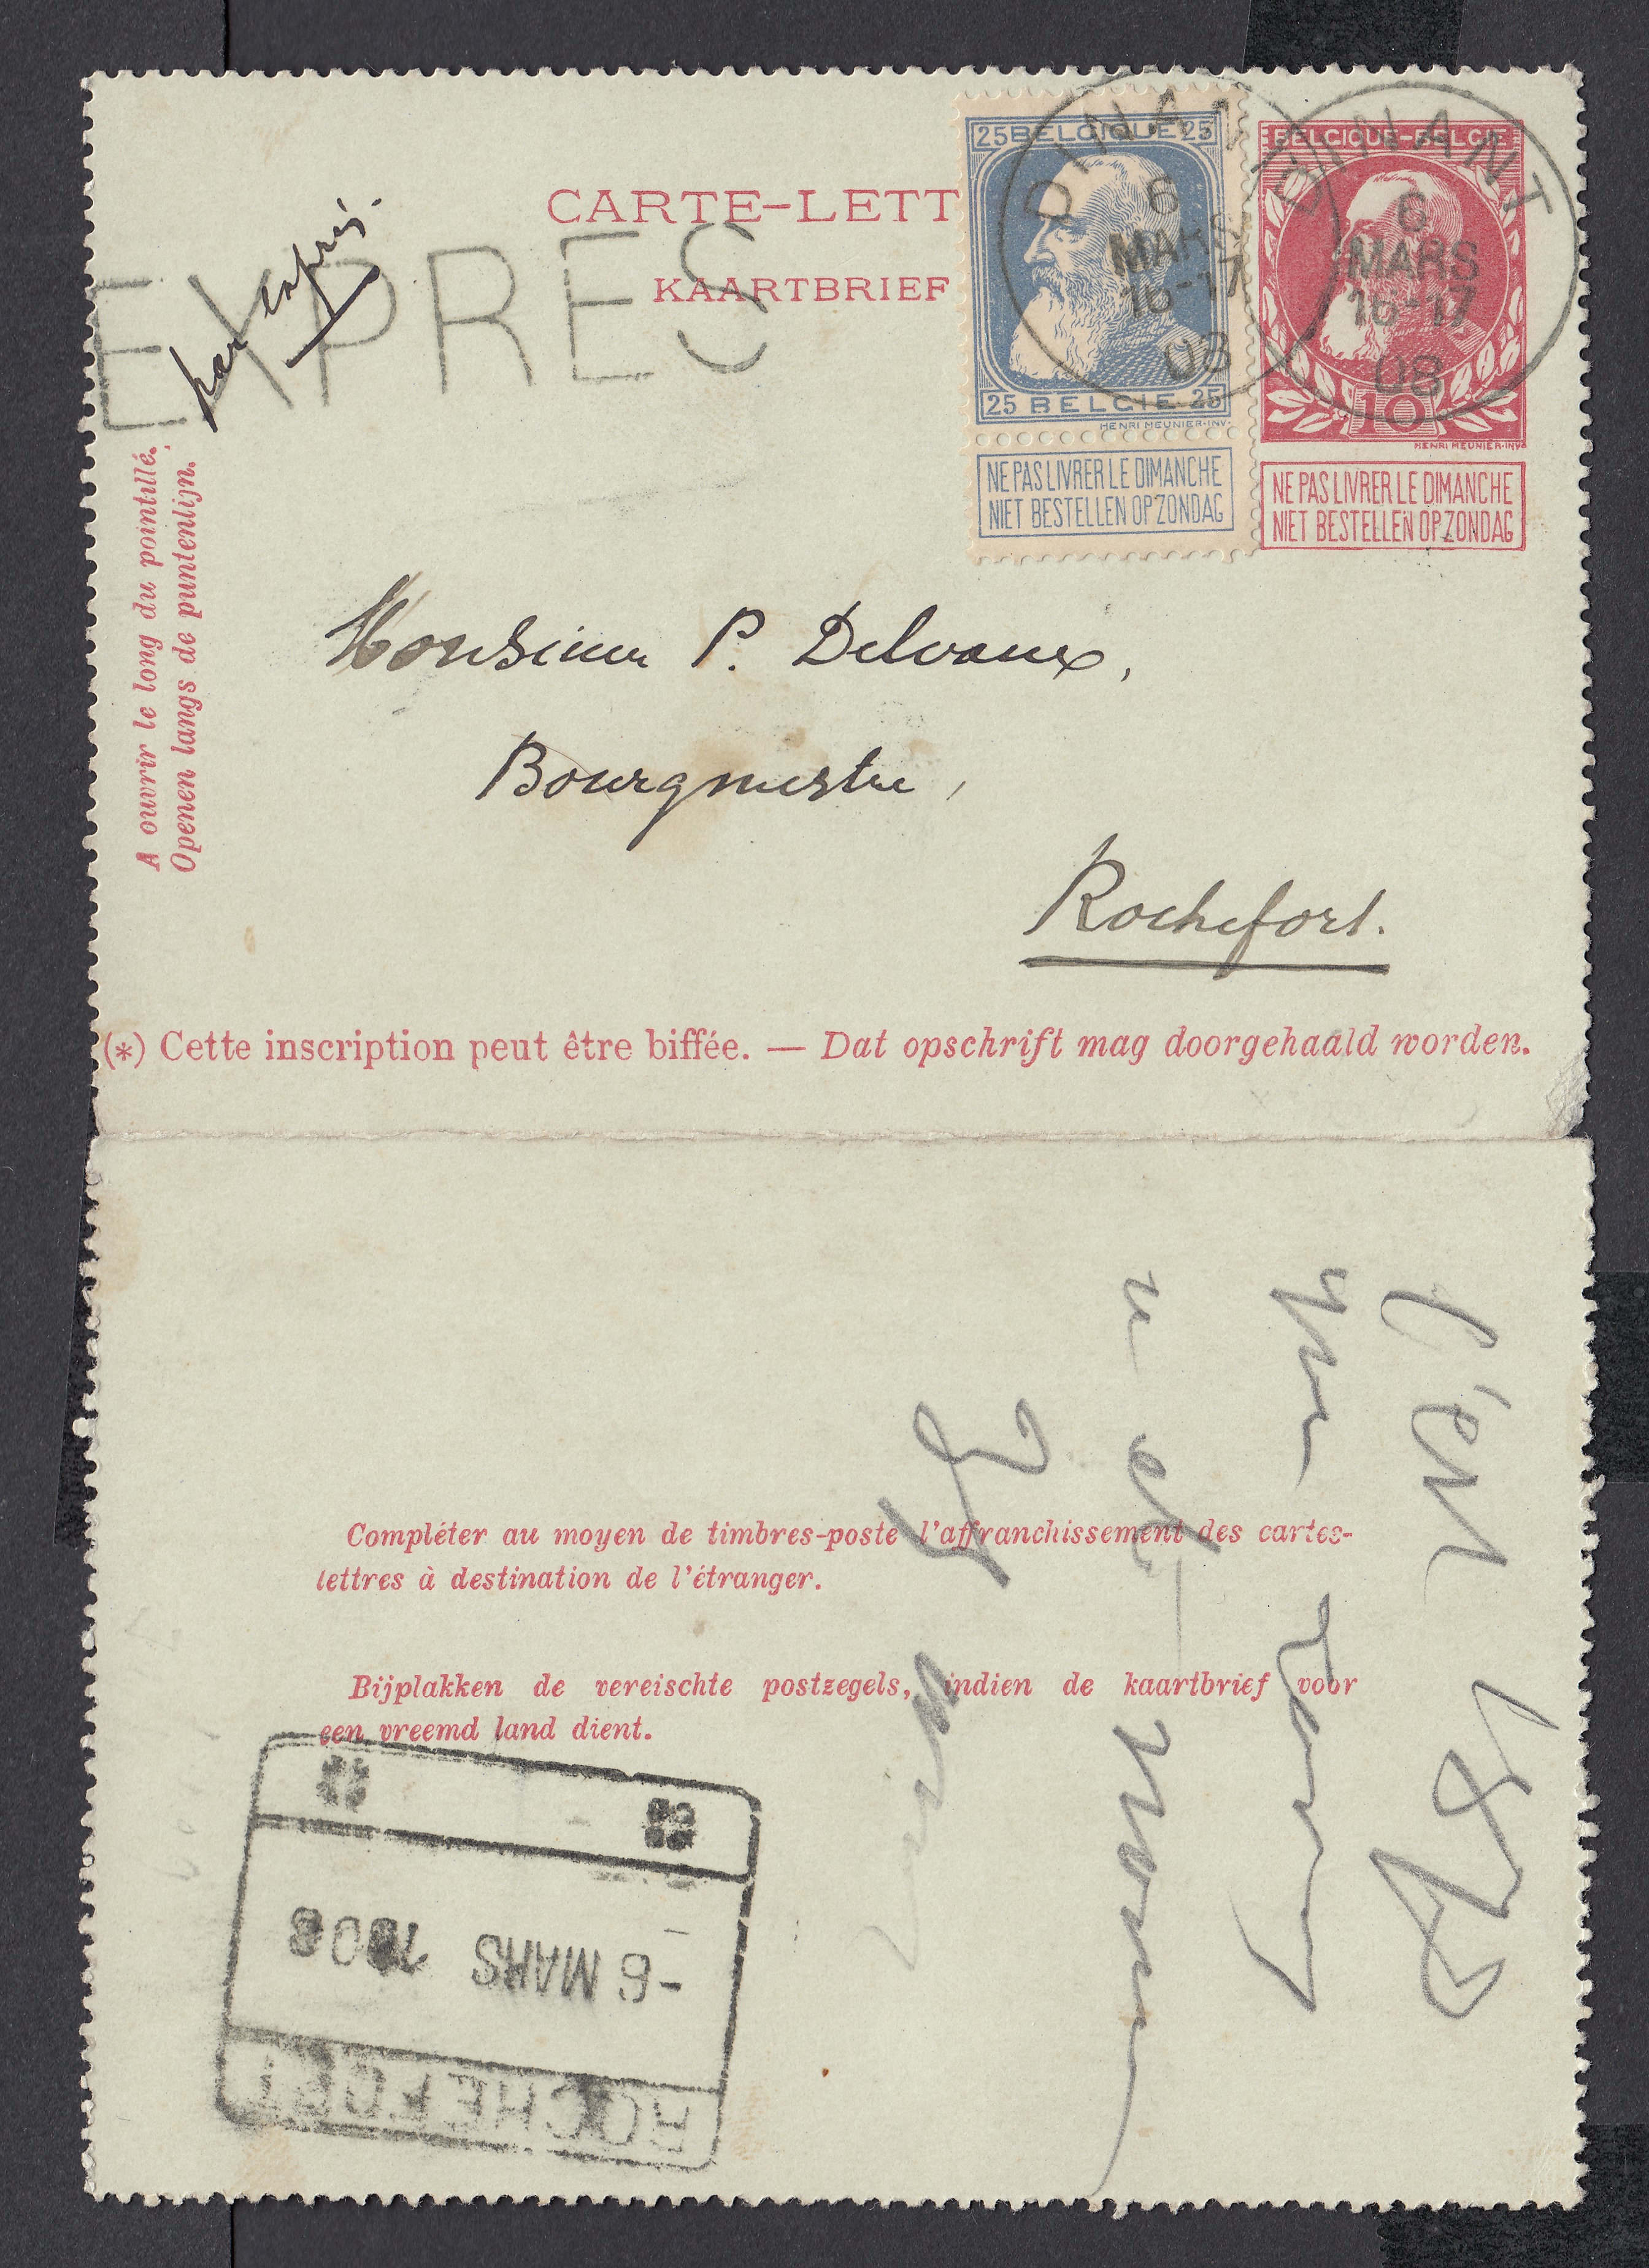 CARTE-LETT
KAARTBRIEF
par exprès.
EXPRES
25 BELGIQUE 25
25 BELGIE 25
HENRI MEUNIER·INV·
NE PAS LIVRER LE DIMANCHE
NIET BESTELLEN OP ZONDAG
BELGIQUE-BELGIE
10
HENRI MEUNIER·INV·
NE PAS LIVRER LE DIMANCHE
NIET BESTELLEN OP ZONDAG
DINANT
6
MARS
16-17
08
DINANT
6
MARS
16-17
08
A ouvrir le long du pointillé.
Openen langs de puntenlijn.
Monsieur P. Delvaux,
Bourgmestre,
Rochefort.
(*) Cette inscription peut être biffée. — Dat opschrift mag doorgehaald worden.
Compléter au moyen de timbres-poste l'affranchissement des cartes-
lettres à destination de l'étranger.
Bijplakken de vereischte postzegels, indien de kaartbrief voor
een vreemd land dient.
-6 MARS 1908
ROCHEFORT